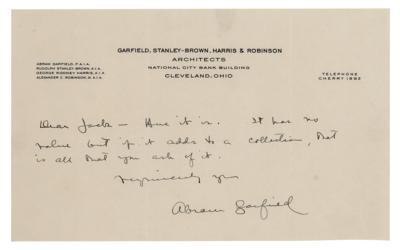 GARFIELD, STANLEY-BROWN, HARRIS & ROBINSON
ARCHITECTS
NATIONAL CITY BANK BUILDING
CLEVELAND, OHIO
ABRAM GARFIELD, F.A.I.A.
RUDOLPH STANLEY-BROWN, A.I.A.
GEORGE RODNEY HARRIS, A.I.A.
ALEXANDER C. ROBINSON, III, A.I.A.
TELEPHONE
CHERRY 1892
Dear Jack— Here it is. It has no
value but if it adds to a collection, that
is all that you ask of it.
Very sincerely yrs
Abram Garfield